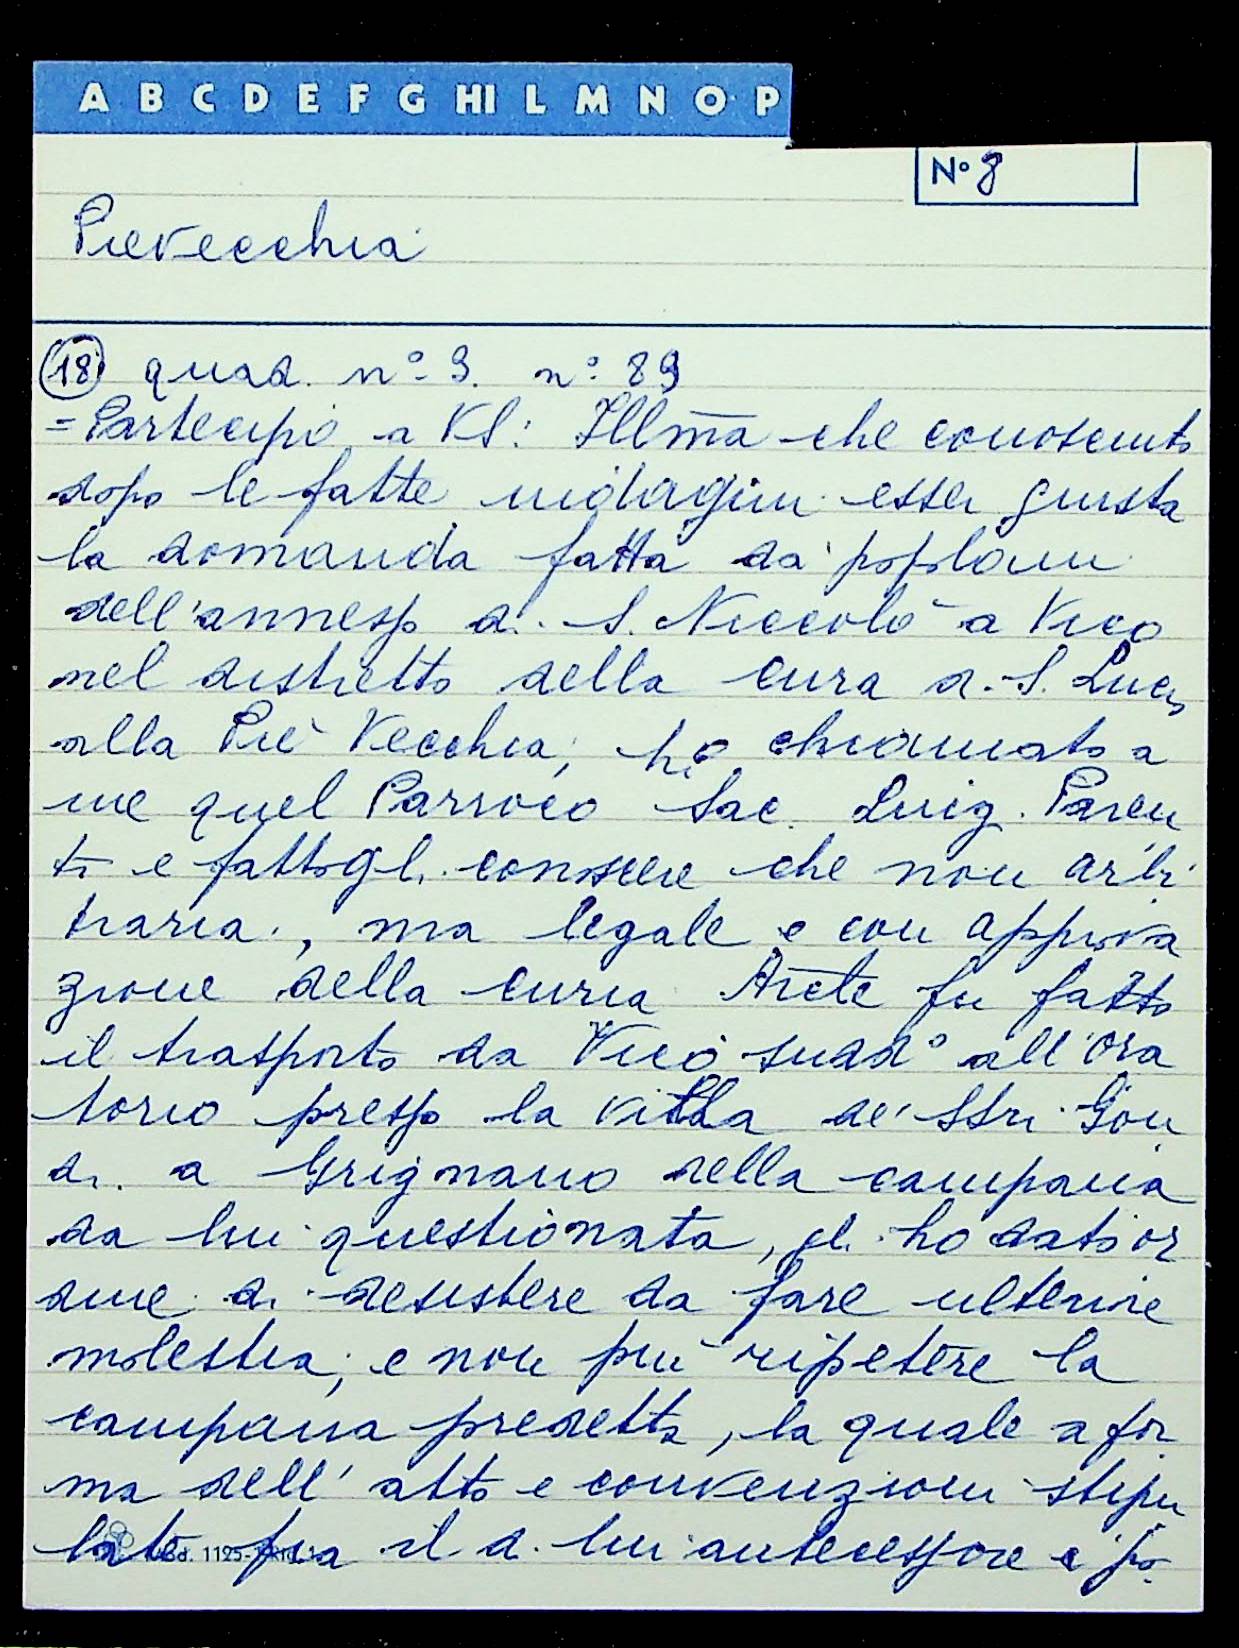 A B C D E F G HI L M N O P
N° 8
Pievecchia
18 quad. n° 9. n° 89
= Partecipo a VS: Illma che conosciuto
dopo le fatte indagini esser giusta
la domanda fatta da popolani
dell'annesso di S. Niccolò a Vico
nel distretto della cura di S. Lucia
alla Piè Vecchia, ho chiamato a
me quel Parroco Sac. Luigi Paren
ti e fattogli conoscere che non arbi
traria, ma legale e con approva
zione della curia fu fatto
il trasporto da Vico sudd° all'ora
torio presso la villa de' SSri Gon
di a Grignano della campana
da lui questionata, gli ho dato or
dine di desistere da fare ulteriore
molestia, e non più ripetere la
campana predetta, la quale a for
ma dell'atto e convenzioni stipu
late fra il di lui antecessore e
Mod. 1125-